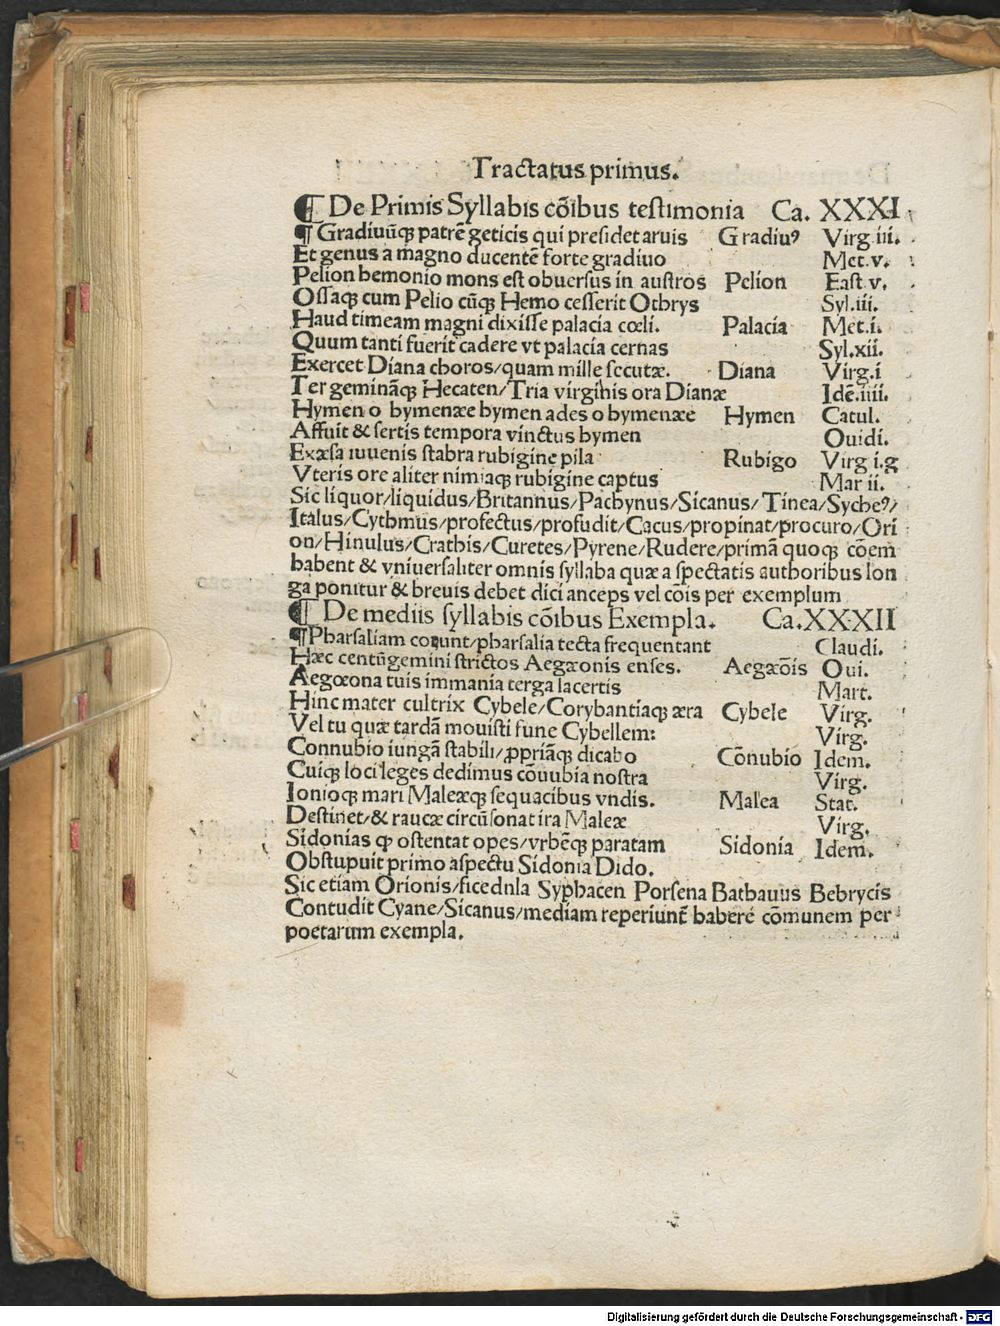 Tractatus primus.
¶ De Primis Syllabis cõibus testimonia Ca. XXXI
¶ Gradiuũqꝫ patrẽ geticis qui presidet aruis Gradiuꝰ Virg iii.
Et genus a magno ducentẽ forte gradiuo Met.v.
Pelion hemonio mons est obuersus in austros Pelion Fast v.
Ossaqꝫ cum Pelio cũqꝫ Hemo cesserit Othrys Syl.iii.
Haud timeam magni dixisse palacia cœli. Palacia Met.i.
Quum tanti fuerit cadere vt palacia cernas Syl.xii.
Exercet Diana choros/quam mille secutæ. Diana Virg.i
Ter geminãqꝫ Hecaten/Tria virginis ora Dianæ Idẽ.iiii.
Hymen o hymenæe hymen ades o hymenæe Hymen Catul.
Affuit & sertis tempora vinctus hymen Ouidi.
Exæsa iuuenis stabra rubigine pila Rubigo Virg i.g
Vteris ore aliter nimiaqꝫ rubigine captus Mar ii.
Sic liquor/liquidus/Britannus/Pachynus/Sicanus/Tinea/Sycheꝰ/
Italus/Cythmus/profectus/profudit/Cacus/propinat/procuro/Ori
on/Hinulus/Crathis/Curetes/Pyrene/Rudere/primã quoqꝫ cõem
habent & vniuersaliter omnis syllaba quæ a spectatis authoribus lon
ga ponitur & breuis debet dici anceps vel cõis per exemplum
¶ De mediis syllabis cõibus Exempla. Ca.XXXII
¶Pharsaliam coeunt/pharsalia tecta frequentant Claudi.
Hæc centũgemini strictos Aegæonis enses. Aegæõis Oui.
Aegœona tuis immania terga lacertis Mart.
Hinc mater cultrix Cybele/Corybantiaqꝫ æra Cybele Virg.
Vel tu quæ tardã mouisti fune Cybellem: Virg.
Connubio iungã stabili/ꝓpriãqꝫ dicabo Cõnubio Idem.
Cuiqꝫ loci leges dedimus cõnubia nostra Virg.
Ionioqꝫ mari Maleæqꝫ sequacibus vndis. Malea Stat.
Destinet/& raucæ circũsonat ira Maleæ Virg.
Sidonias qꝫ ostentat opes/vrbẽqꝫ paratam Sidonia Idem.
Obstupuit primo aspectu Sidonia Dido.
Sic etiam Orionis/ficednla Syphacen Porsena Batbauus Bebrycis
Contudit Cyane/Sicanus/mediam reperiunt̃ habere cõmunem per
poetarum exempla.
Digitalisierung gefördert durch die Deutsche Forschungsgemeinschaft - DFG